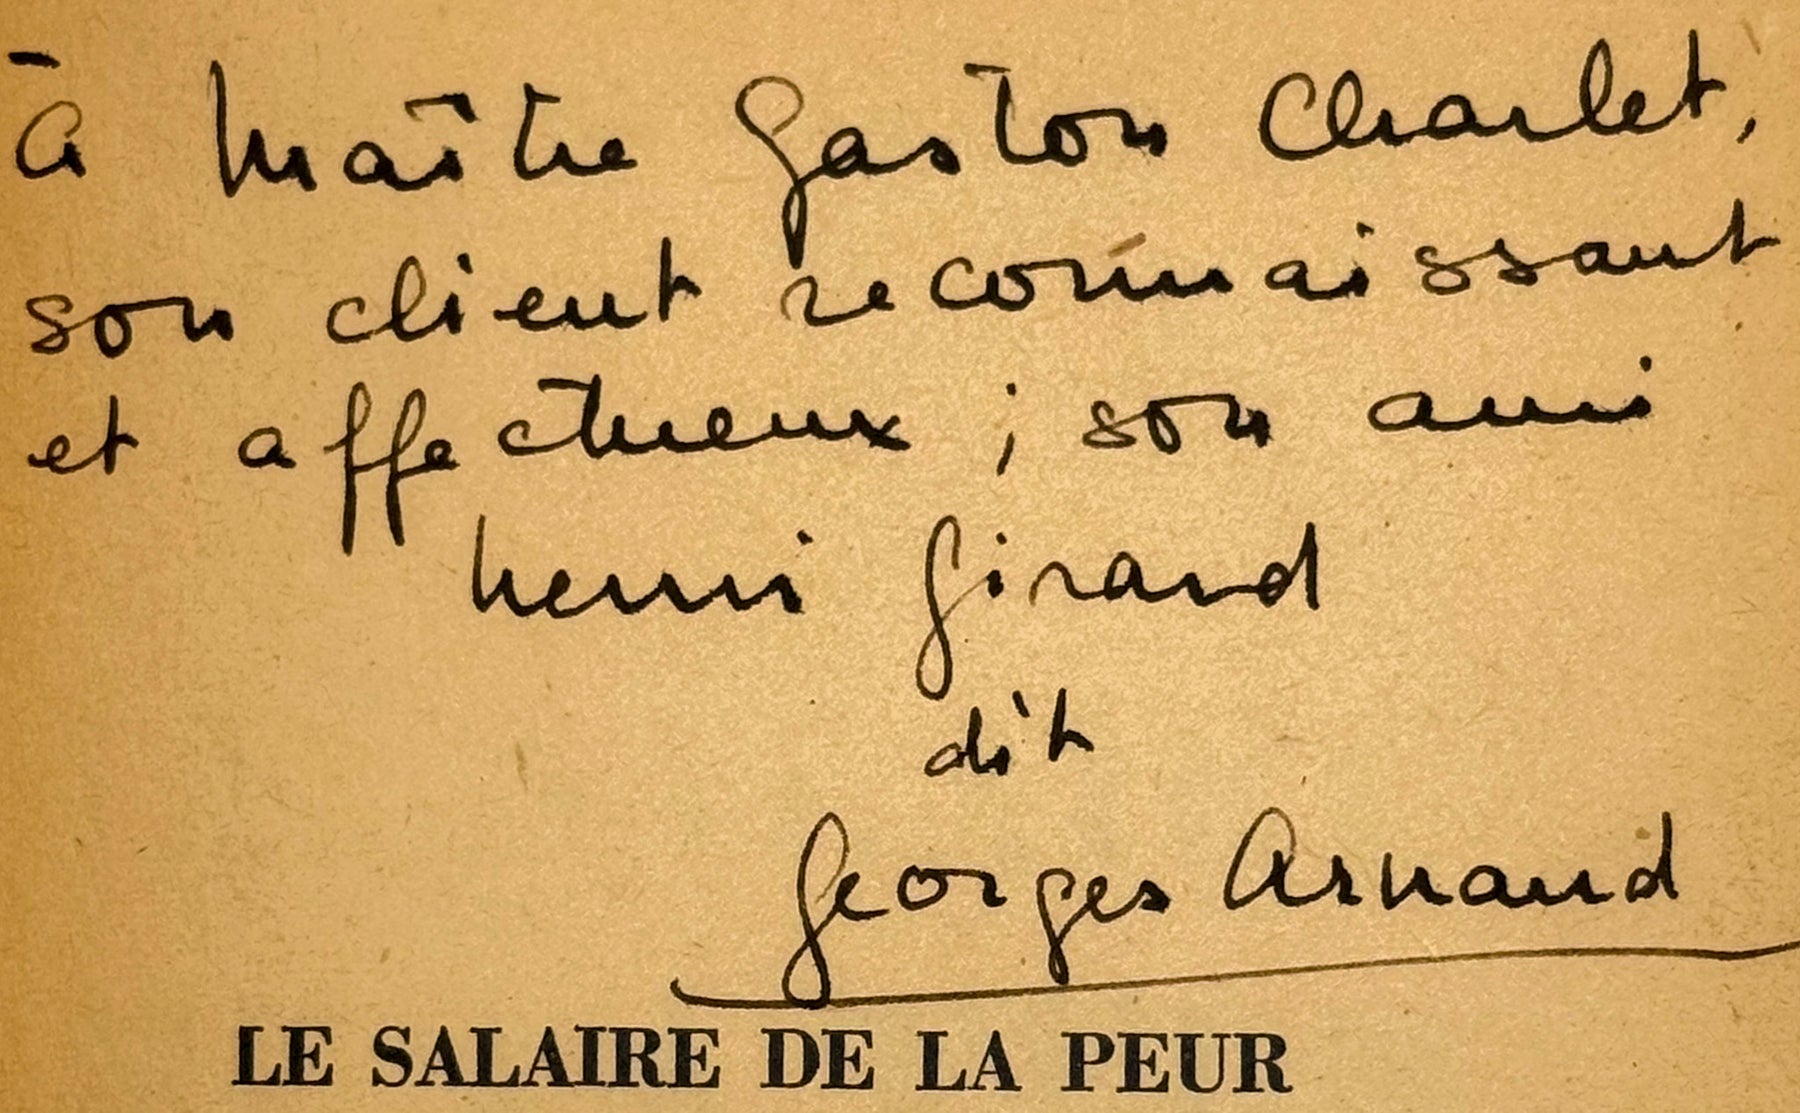 À Maître Gaston Charlet,
son client reconnaissant
et affectueux ; son ami
henri Girard
dit
Georges Arnaud
LE SALAIRE DE LA PEUR